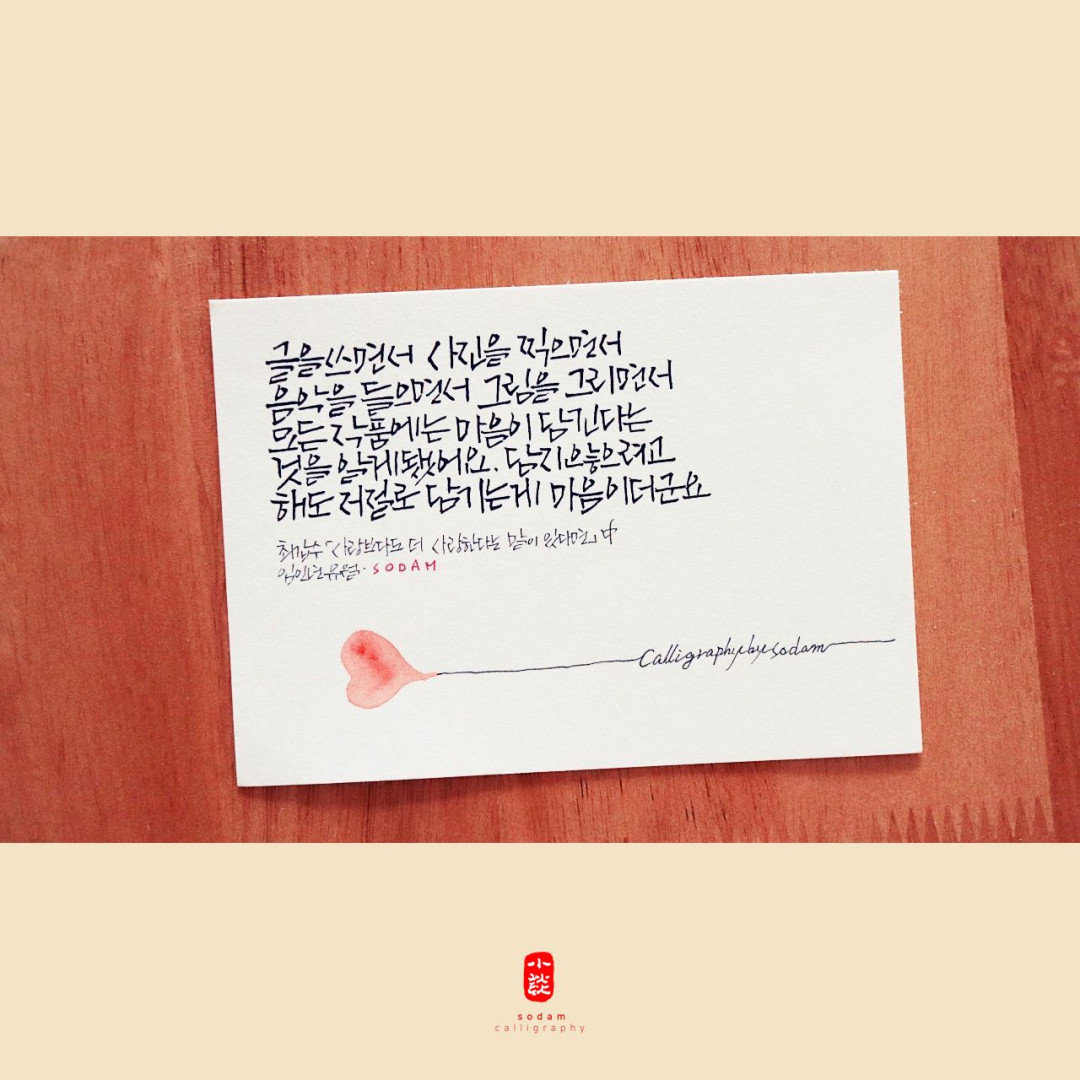 글을쓰면서 사진을 찍으면서
음악을 들으면서 그림을 그리면서
모든 작품에는 마음이 담긴다는
것을 알게됐어요. 담지않으려고
해도 저절로 담기는게 마음이더군요
최갑수「사랑보다도 더 사랑한다는 말이 있다면」中
임인년 유월. SODAM
Calligraphybysodam
小談
sodam
calligraphy